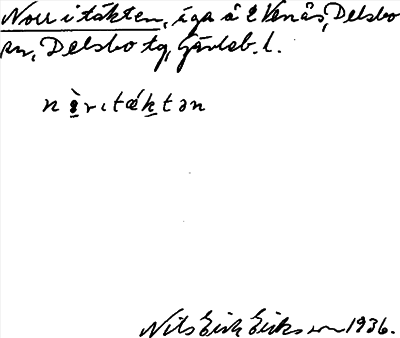 Norr i täkten, äga å 2 Venås, Delsbo
sn, Delsbo tg, Gävleb. l.
nèritäktən
Nils Erik Eriksson 1936.